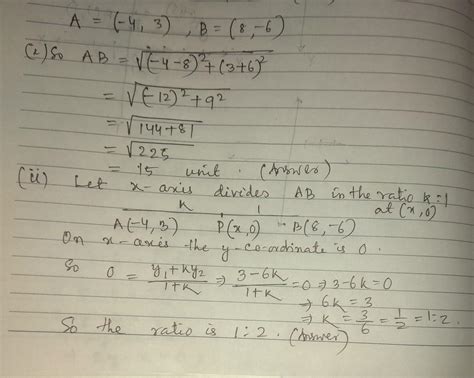 A = (-4, 3) , B = (8, -6)
(i) So AB = √(-4-8)² + (3+6)²
= √(-12)² + 9²
= √144+81
= √225
= 15 unit. (Answer)
(ii) Let x-axis divides AB in the ratio k:1
at (x, 0)
K 1
A(-4, 3) P(x, 0) B(8, -6)
On x-axis the y-co-ordinate is 0.
So 0 = (y₁+ky₂)/(1+k) ⇒ (3-6k)/(1+k) = 0 ⇒ 3-6k=0
⇒ 6k = 3
⇒ k = 3/6 = 1/2 = 1:2.
So the ratio is 1:2. (Answer)